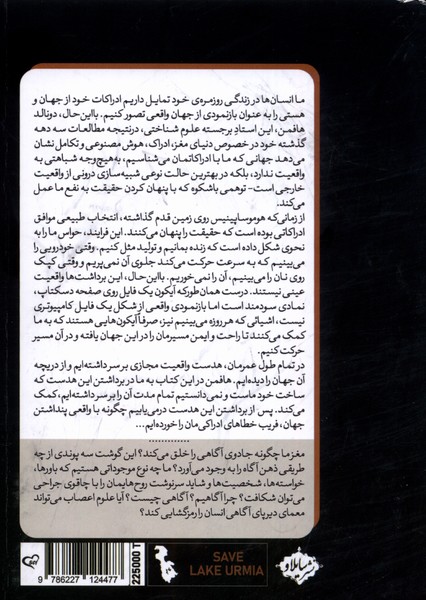 ما انسان‌ها در زندگی روزمره‌ی خود تمایل داریم ادراکات خود از جهان و
هستی را به عنوان بازنمودی از جهان واقعی تصور کنیم. بااین‌حال، دونالد
هافمن، این استاد برجسته علوم شناختی، درنتیجه مطالعات سه دهه
گذشته خود در خصوص دنیای مغز، ادراک، هوش مصنوعی و تکامل نشان
می‌دهد جهانی که ما با ادراکاتمان می‌شناسیم، به‌هیچ‌وجه شباهتی به
واقعیت ندارد، بلکه در بهترین حالت نوعی شبیه‌سازی درونی از واقعیت
خارجی است- توهمی باشکوه که با پنهان کردن حقیقت به نفع ما عمل
می‌کند.
از زمانی‌که هوموساپینیس روی زمین قدم گذاشته، انتخاب طبیعی موافق
ادراکاتی بوده است که حقیقت را پنهان می‌کنند. این فرایند، حواس ما را به
نحوی شکل داده است که زنده بمانیم و تولید مثل کنیم. وقتی خودرویی را
می‌بینیم که به سرعت حرکت می‌کند جلوی آن نمی‌پریم و وقتی کپک
روی نان را می‌بینیم، آن را نمی‌خوریم. بااین‌حال، این برداشت‌ها واقعیت
عینی نیستند. درست همان طورکه آیکون یک فایل روی صفحه دسکتاپ،
نمادی سودمند است اما بازنمودی واقعی از شکل یک فایل کامپیوتری
نیست، اشیائی که هر روزه می‌بینیم نیز، صرفاً آیکون‌هایی هستند که به ما
کمک می‌کنند تا راحت و ایمن مسیرمان را در این جهان یافته و در آن مسیر
حرکت کنیم.
در تمام طول عمرمان، هدست واقعیت مجازی بر سر داشته‌ایم و از دریچه
آن جهان را دیده‌ایم. هافمن در این کتاب به ما در برداشتن این هدست که
ساخت خود ماست و نمی‌دانستیم تمام مدت آن را بر سر داشته‌ایم، کمک
می‌کند. پس از برداشتن این هدست درمی‌یابیم چگونه با واقعی پنداشتن
جهان، فریب خطاهای ادراکی‌مان را خورده‌ایم...
مغز ما چگونه جادوی آگاهی را خلق می‌کند؟ این گوشت سه پوندی از چه
طریقی ذهن آگاه را به وجود می‌آورد؟ ما چه نوع موجوداتی هستیم که باورها،
خواسته‌ها، شخصیت‌ها و شاید سرنوشت روح‌هایمان را با چاقوی جراحی
می‌توان شکافت؟ چرا آگاهیم؟ آگاهی چیست؟ آیا علوم اعصاب می‌تواند
معمای دیرپای آگاهی انسان را رمزگشایی کند؟
9 786227 124477
225000 T
SAVE
LAKE URMIA